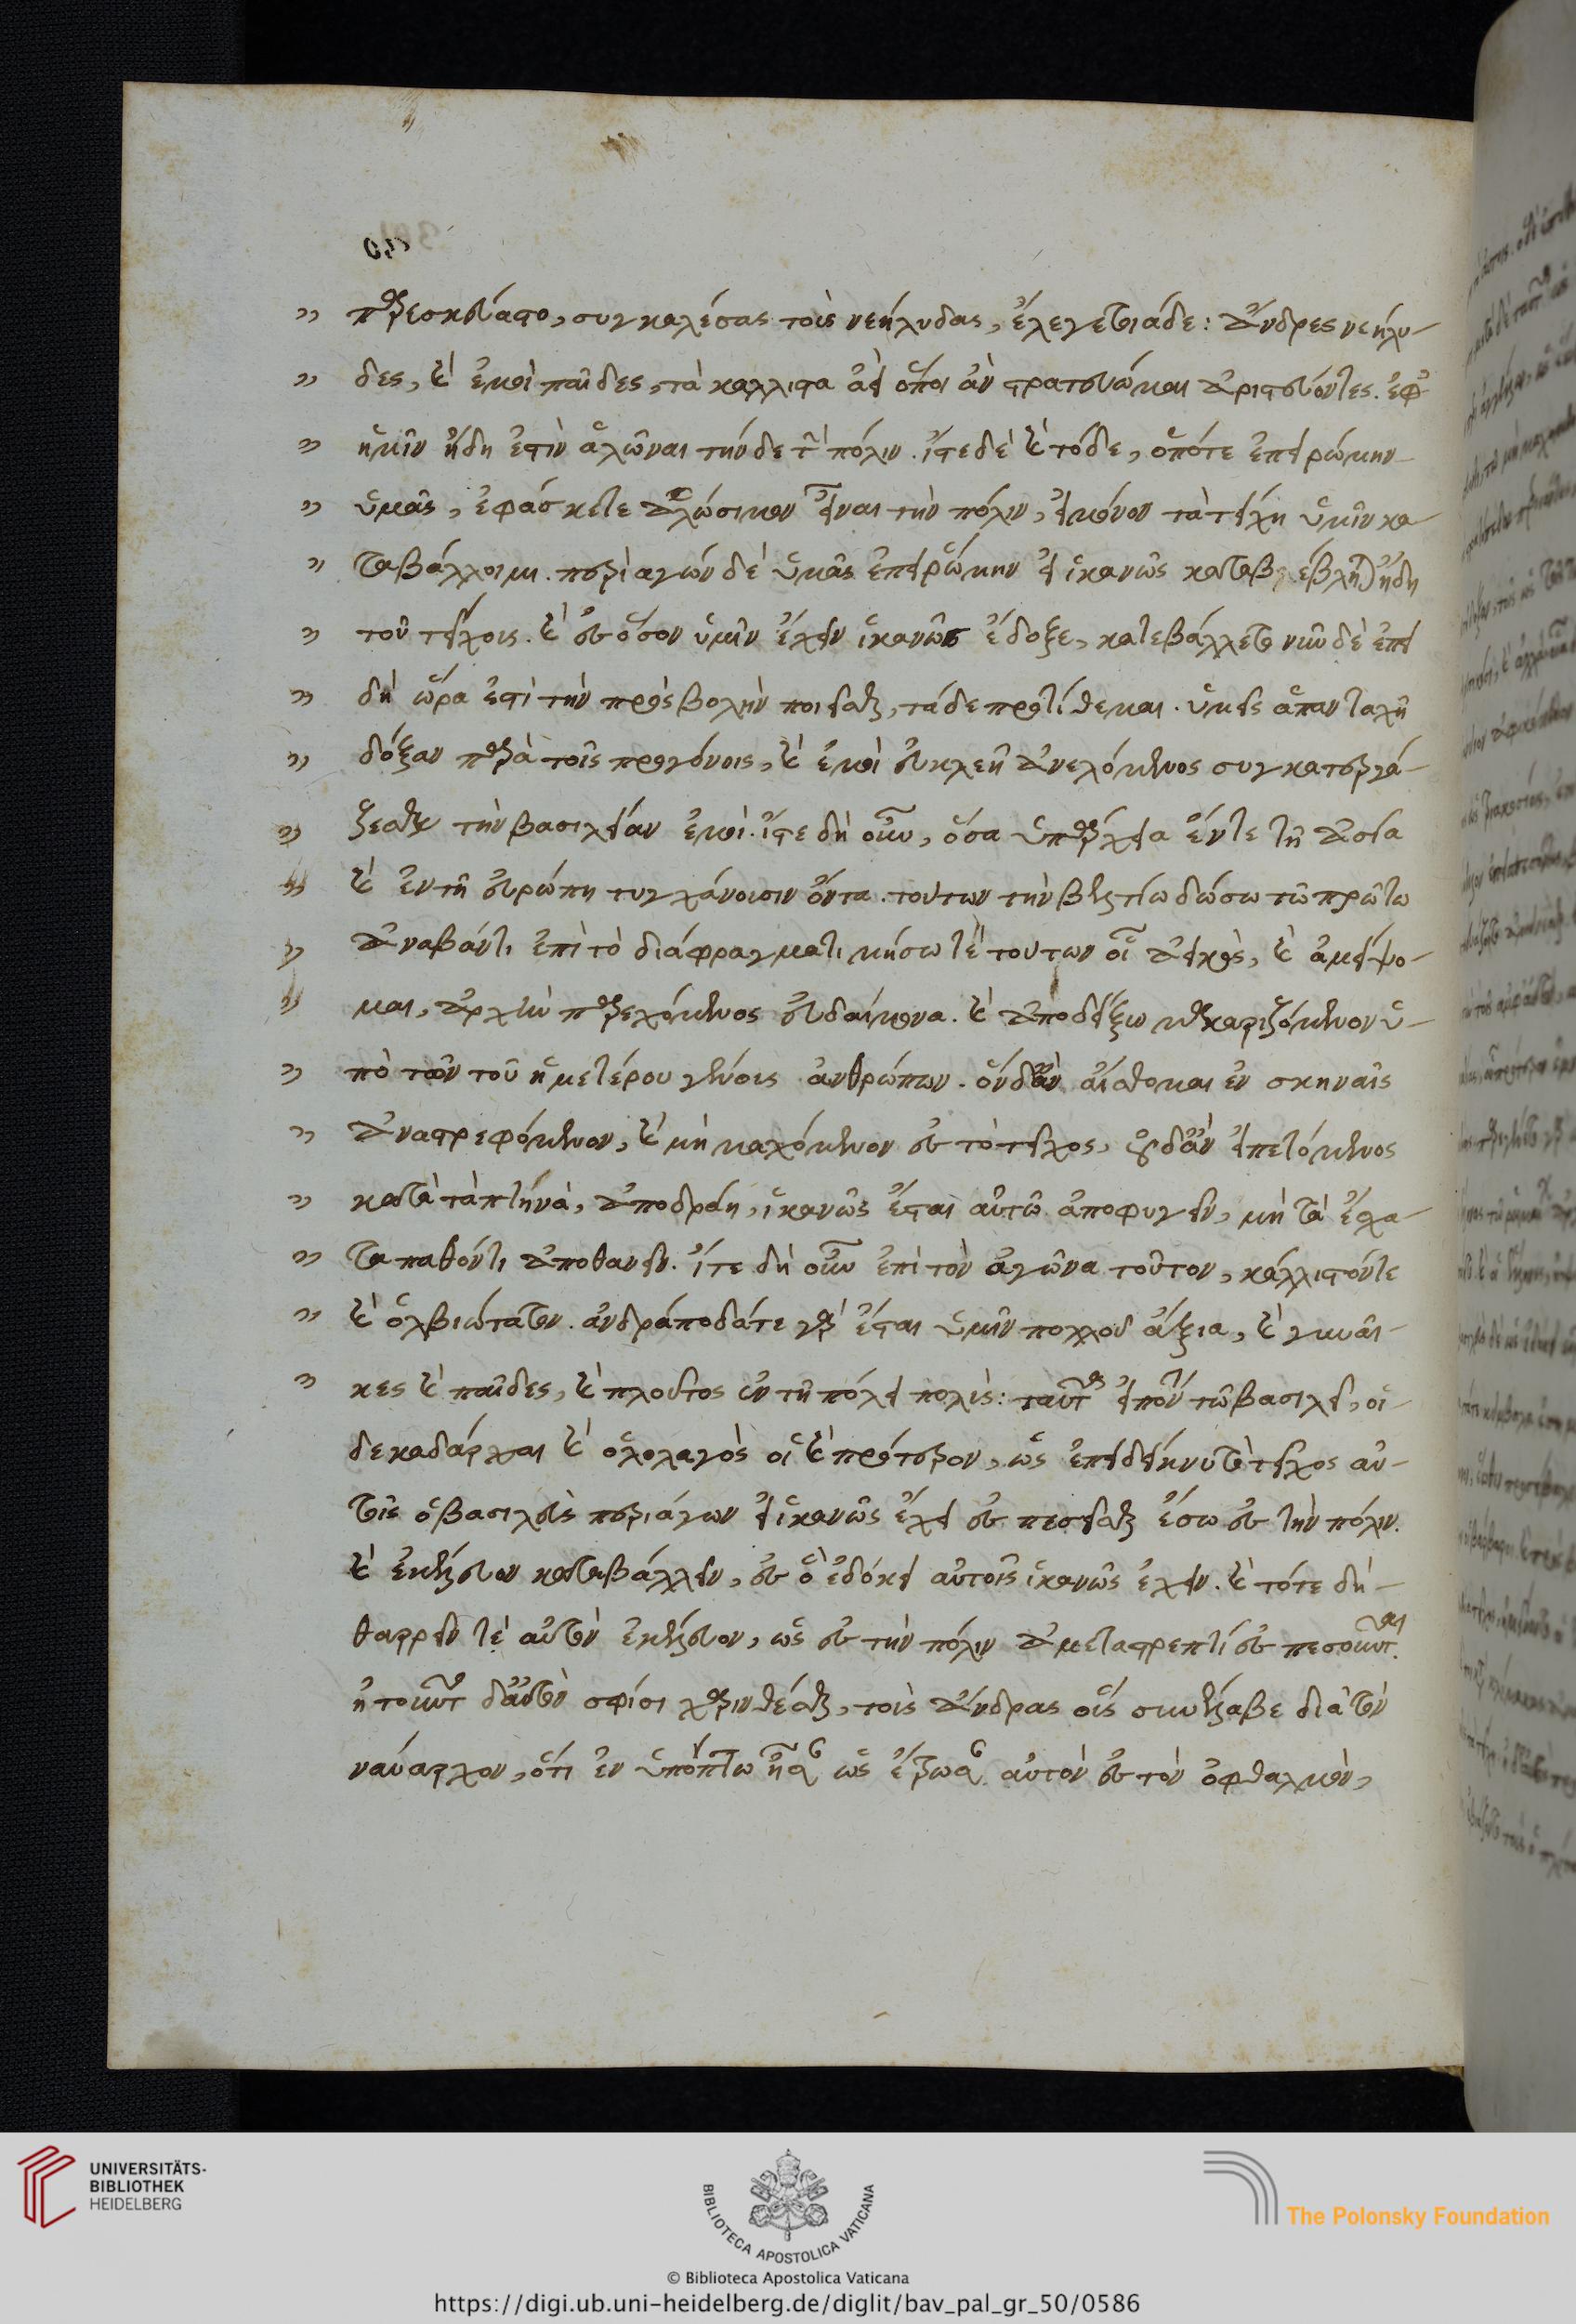 παρεσκευάσατο, συγκαλέσας τοὺς νεήλυδας, ἔλεγε τοιάδε: ἄνδρες νεήλυ-
δες, καὶ ἐμοὶ παῖδες, τὰ κάλλιστα ἀεὶ ὅποι ἂν στρατευώμαι ἀριστεύοντες. ἐφ᾽
ἡμῖν ἤδη ἐστὶν ἁλῶναι τήνδε τὴν πόλιν. ἴστε δὲ καὶ τόδε, ὁπότε ἐπειρώμην
ὑμᾶς, ἐφάσκετε ἁλώσιμον εἶναι τὴν πόλιν, εἰ μόνον τὰ τείχη ὑμῖν κα-
ταβάλλοιμι. περιαγὼν δὲ ὑμᾶς ἐπειρώμην εἰ ἱκανῶς καταβεβλῆται ἤδη
τοῦ τείχους. καὶ ἐς ὅσον ὑμῖν ἔχειν ἱκανῶς ἔδοξε, κατεβάλλετο νῦν δὲ ἐπεὶ
δὴ ὥρα ἐστὶ τὴν προσβολὴν ποιεῖσθαι, τάδε προτίθεμαι. ὑμεῖς ἁπανταχῆ
δόξαν παρὰ τοῖς προγόνοις, καὶ ἐμοὶ εὐκλεῆ ἀνελόμενος συγκατεργά-
ζεσθαι τὴν βασιλείαν ἐμοί. ἴστε δὴ οὖν, ὅσα ὑπαρχεῖα ἔν τε τῇ ἀσία
καὶ ἐν τῇ εὐρώπη τυγχάνουσιν ὄντα. τούτων τὴν βελτίω δώσω τῷ πρώτω
ἀναβάντι ἐπὶ τὸ διάφραγμα τιμήσω τε τούτων οἷ ἀεικὸς, καὶ ἀμείψο-
μαι, ἀρχὴν παρεχόμενος εὐδαίμονα. καὶ ἀποδείξω μακαριζόμενον ὑ-
πὸ τῶν τοῦ ἡμετέρου γένους ἀνθρώπων. ὃν δ᾽ ἂν αἴσθομαι ἐν σκηναῖς
ἀναστρεφόμενον, καὶ μὴ μαχόμενον ἐς τὸ τεῖχος, οὐδ᾽ ἂν εἰ πετόμενος
κατὰ τὰ πτηνά, ἀποδράη, ἱκανῶς ἔσται αὐτῷ ἀποφυγεῖν, μὴ τὰ ἔσχα-
τα παθόντι ἀποθανεῖν. ἴτε δὴ οὖν ἐπὶ τὸν ἀγῶνα τοῦτον, κάλλιστόν τε
καὶ ὀλβιώτατον. ἀνδράποδά τε γὰρ ἔσται ὑμῖν πολλοῦ ἄξια, καὶ γυναῖ-
κες καὶ παῖδες, καὶ πλοῦτος ἐν τῇ πόλει πολύς: ταῦτα εἰπόντι τῷ βασιλεῖ, οἱ
δεκαδάρχαι καὶ οὐλολαγὸς οἳ καὶ πρότερον, ὡς ἐπεδείκνυ τὸ τεῖχος αὐ-
τοῖς ὁ βασιλεὺς περιάγων εἰ ἱκανῶς ἔχει ἐς πεσεῖσθαι ἔσω ἐς τὴν πόλιν.
καὶ ἐκέλευον καταβάλλειν, ἐς ὃ ἐδόκει αὐτοῖς ἱκανῶς ἔχειν. καὶ τότε δὴ
θαρρεῖν τε αὐτὸν ἐκέλευον, ὡς ἐς τὴν πόλιν ἀμεταστρεπτὶ ἐς πεσοῦνται.
ᾐτοῦντο δ᾽ αὐτὸν σφίσι χάριν θέσθαι, τοὺς ἄνδρας οὓς συνέλαβε διὰ τὸν
ναύαρχον, ὅτι ἐν ὑπόπτω ἦσαν ὡς ἔτρωσαν αὐτὸν ἐς τὸν ὀφθαλμὸν,
UNIVERSITÄTS-
BIBLIOTHEK
HEIDELBERG
BIBLIOTECA APOSTOLICA VATICANA
The Polonsky Foundation
© Biblioteca Apostolica Vaticana
https://digi.ub.uni-heidelberg.de/diglit/bav_pal_gr_50/0586